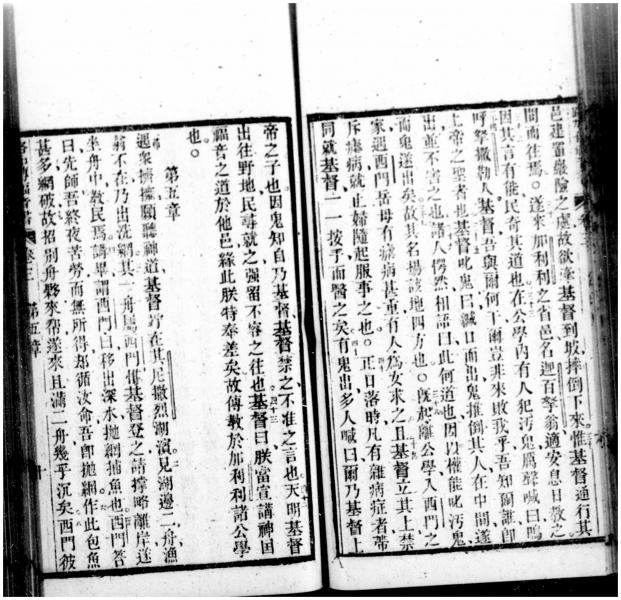 邑建置嚴險之處故欲牽基督到坡摔倒下來惟基督通行其
間而往焉。遂來加利利之省邑名迦百拏翕適安息日教之
因其言有能民奇其道也在公學內有人犯污鬼厲聲喊曰嗚
呼拏撒勒人基督吾與爾何干爾豈非來敗我乎吾知爾誰即
上帝之聖者也基督叱鬼曰緘口而出鬼推倒其人在中間遂
出並不害之也諸人愕然相語曰此何道也因以權能叱污鬼
而鬼遂出矣故其名揚該地四方也。既起離公學入西門之
家遇西門岳母有瘧病甚重有人為女求之且基督立其上禁
斥瘧病就止婦隨起服事之也。正日落時凡有雜病症者帶
同就基督一一按手而醫之矣有鬼出多人喊曰爾乃基督上
帝之子也因鬼知自乃基督基督禁之不准之言也天明基督
出往野地民尋就之强留不容之往也基督曰朕當宣講神国
福音之道於他邑緣此朕特奉差矣故傳教於加利利諸公學
也。
第五章
遇衆擠擁願聽神道基督竚在其尼撒烈湖濱見湖邊二舟漁
翁不在乃出洗網其一舟屬西門惟基督登之請撑略離岸遂
坐舟中教民焉講畢謂西門曰移出深水拋網捕魚也西門答
曰先師吾終夜苦勞而無所得却循汝命吾即拋網作此包魚
甚多網破故招別舟夥來帮遂來且滿二舟幾乎沉矣西門彼
卷三 第五章